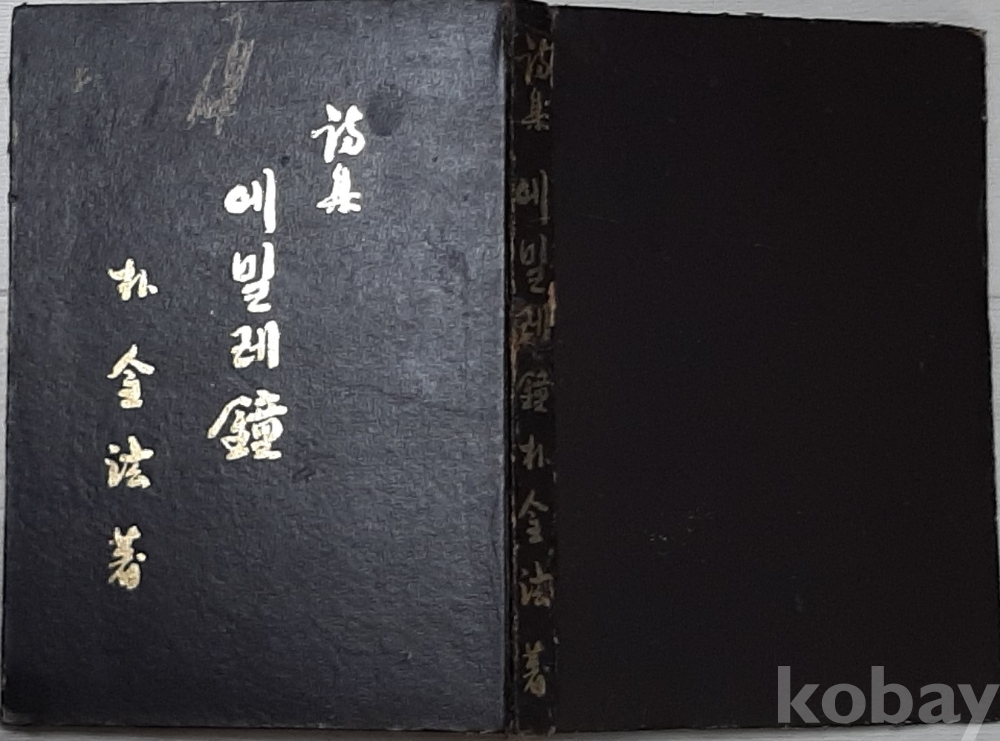 詩集
에밀레鐘
朴金法著
詩集 에밀레鐘 朴金法 著
kobay